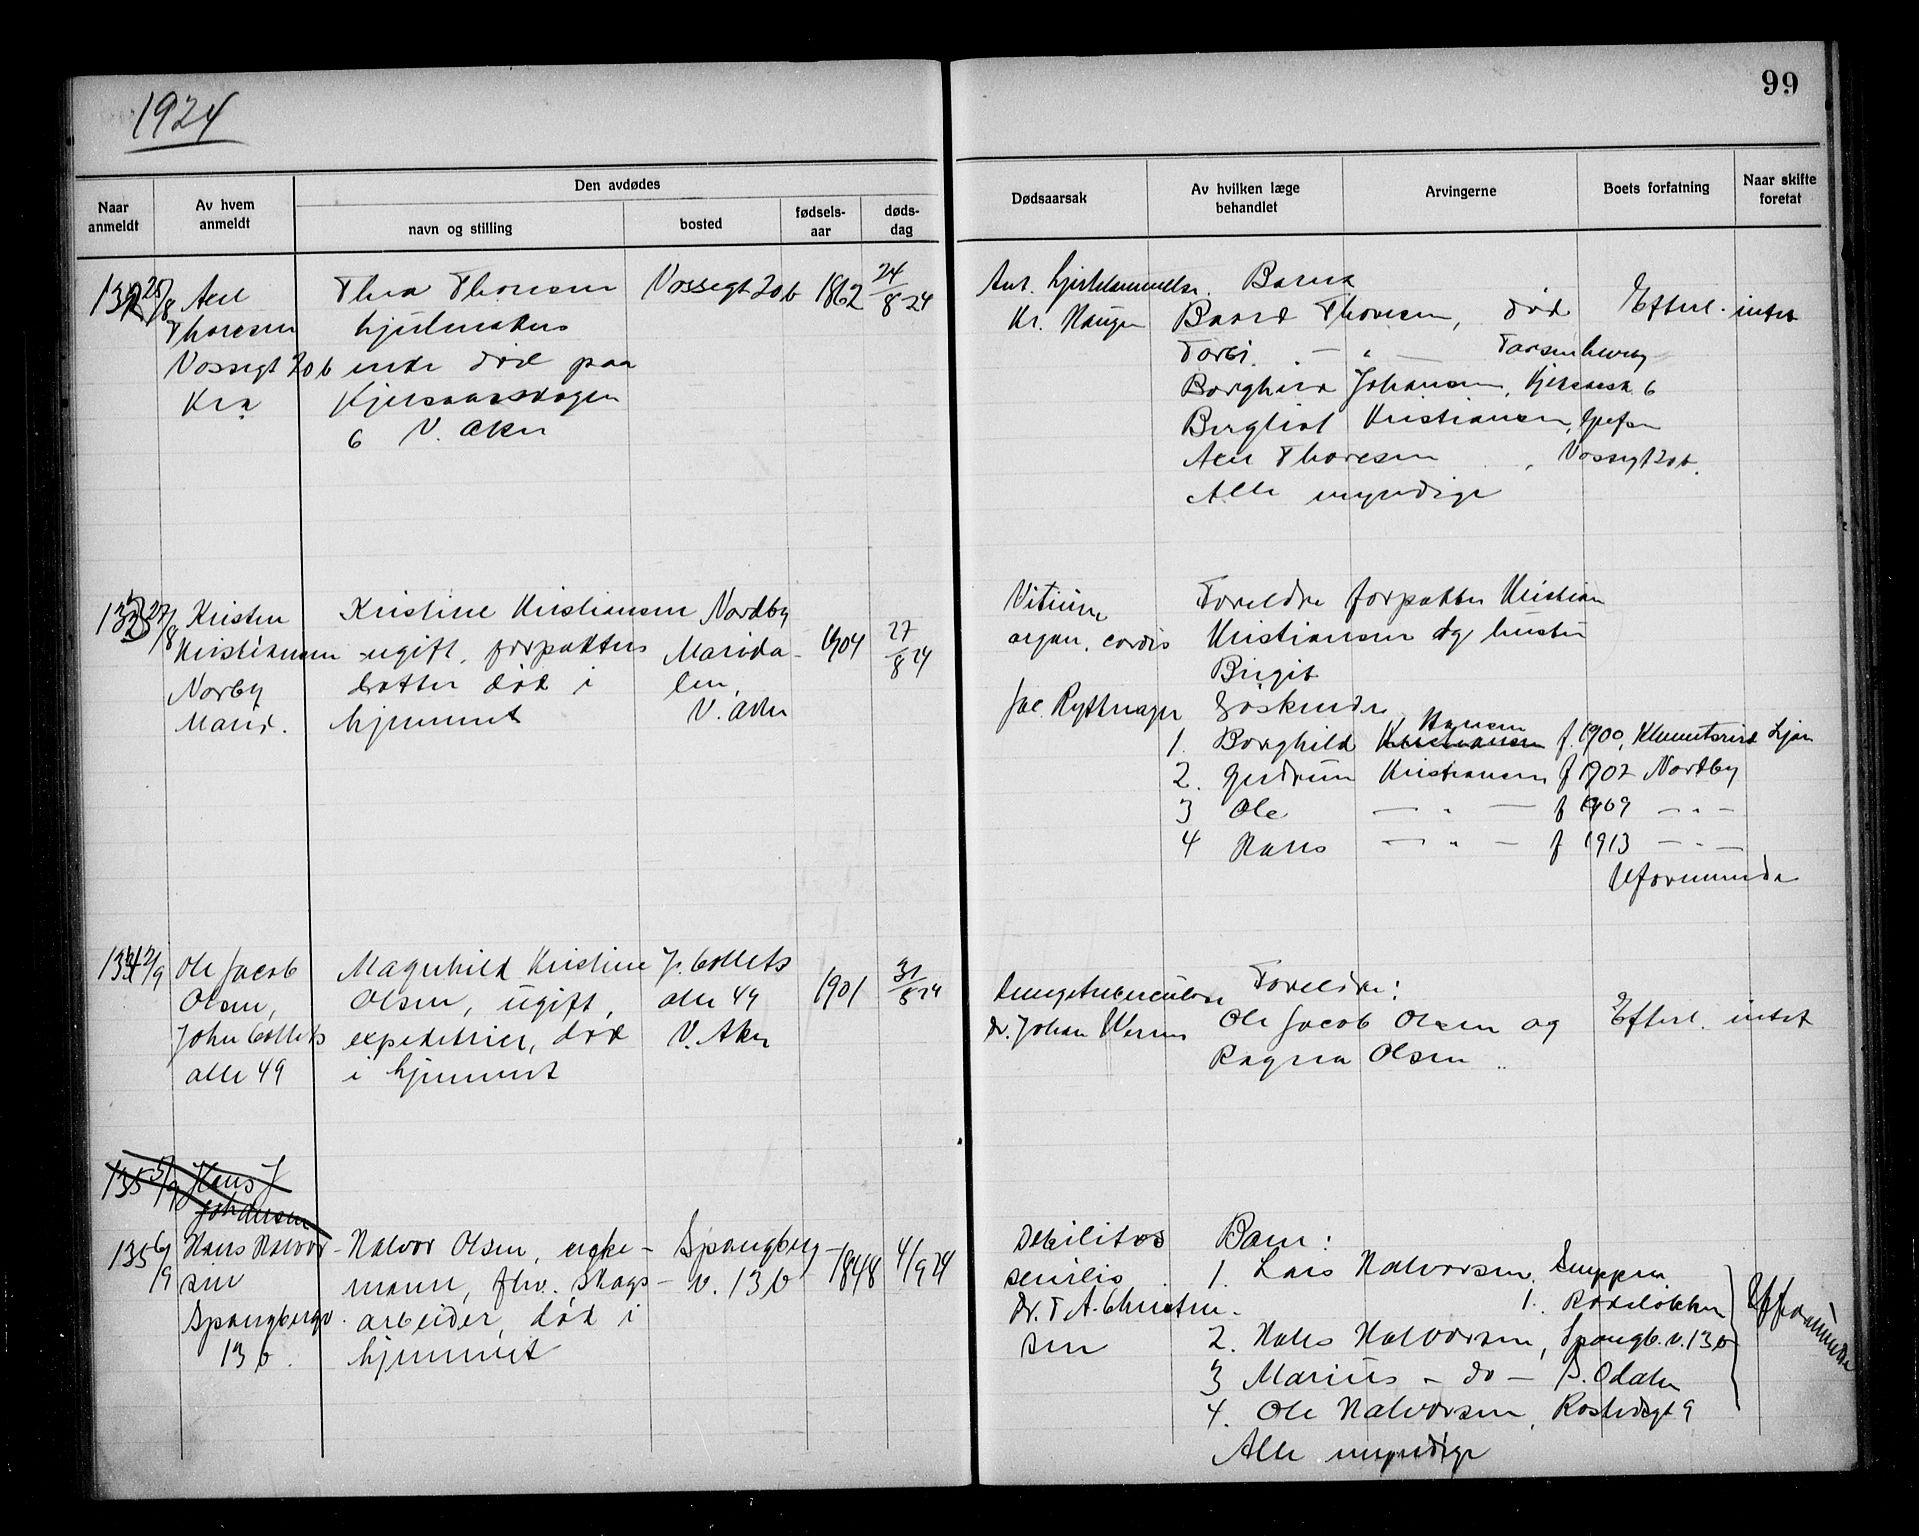 1924
99
Naar anmeldt
Av hvem anmeldt
Den avdødes
navn og stilling
bosted
fødsels-aar
døds-dag
Dødsaarsak
Av hvilken læge behandlet
Arvingerne
Boets forfatning
Naar skifte foretat
Thoresen
Vossegt 20 b
Kra
Thea Thoresen
hjulmakers
enke død paa
Kjelsaasvegen
6 V. Aker
Vossegt 20 b
1862
24/8 24
Kr. Haugen
Barn
Baard Thoresen, død
Borghild Johansen, Kjelsaasv. 6
Bergliot Kristiansen, Gjefsen
Thoresen, Vossegt 20 b.
Alle myndige
Efterl. intet
27/8
Kristen
Kristiansen
Norby
Marid.
Kristine Kristiansen
ugift, forpakters
datter død i
hjemmet
Nordby
Marida-
len,
V. Aker
1904
27/8 24
Vitium
organ. cordis
Jac. Rytterager
Foreldre forpakter Kristian
Kristiansen og hustru
Birgit
Søskende
1. Borghild Kristiansen Hansen f. 1900, Klemetsrud Ljan
2. Gudrun Kristiansen f 1902 Nordby
3 Ole — " — f 1909 — " —
4 Hans — " — f 1913 — " —
Uformuende
134 2/9
Ole Jacob
Olsen,
John Collets
alle 49
Magnhild Kristine
Olsen, ugift,
expeditrice, død
i hjemmet
J. Collets
alle 49
V. Aker
1901
31/8 24
Lungetuberculose
Dr. Johan Werner
Foreldre:
Ole Jacob Olsen og
Ragna Olsen
Efterl. intet
135 5/9 Hans J
Johansen
135 6/9
Hans Halvor-
sen
Spangbergv.
13 b.
Halvor Olsen, enke-
mann, fhv. skogs-
arbeider, død i
hjemmet
Spangberg-
v. 13 b
1848
4/9 24
Debilitas
senilis
Dr. T. A. Christen-
sen
Barn:
1. Lars Halvorsen,
1. Rodeløkken
2. Hans Halvorsen, Spangb.v. 13 b
3 Marius — do — S. Odalen
4. Ole Halvorsen,
Alle myndige
Uformuende